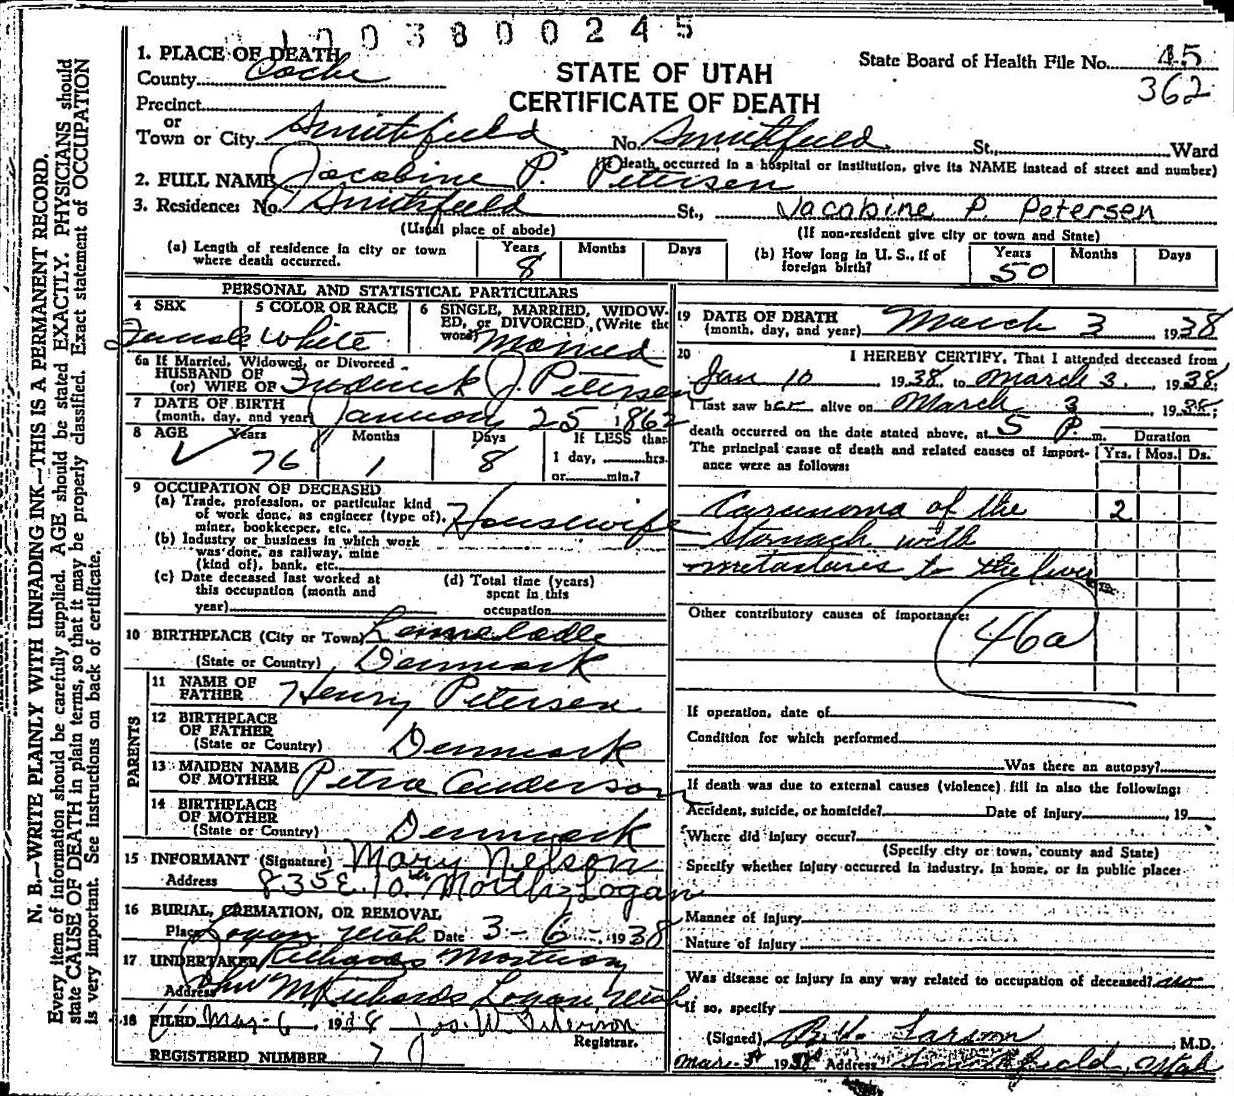 1003800245
1. PLACE OF DEATH
County Cache
STATE OF UTAH
CERTIFICATE OF DEATH
State Board of Health File No. 45
362
Precinct
or
Town or City Smithfield No. Smithfield St., Ward
(If death occurred in a hospital or institution, give its NAME instead of street and number)
2. FULL NAME Jacobine P. Petersen
3. Residence: No. Smithfield St., Jacobine P. Petersen
(Usual place of abode) (If non-resident give city or town and State)
(a) Length of residence in city or town where death occurred. Years 8 Months Days
(b) How long in U. S., if of foreign birth? Years 50 Months Days
PERSONAL AND STATISTICAL PARTICULARS
4 SEX Female
5 COLOR OR RACE White
6 SINGLE, MARRIED, WIDOWED, or DIVORCED, (Write the word) Married
6a If Married, Widowed, or Divorced
HUSBAND OF
(or) WIFE OF Frederick J. Petersen
7 DATE OF BIRTH
(month, day, and year) January 25 1862
8 AGE Years 76 Months 1 Days 8 If LESS than 1 day, hrs. or min.?
9 OCCUPATION OF DECEASED
(a) Trade, profession, or particular kind
of work done, as engineer (type of),
miner, bookkeeper, etc. Housewife
(b) Industry or business in which work
was done, as railway, mine
(kind of), bank, etc.
(c) Date deceased last worked at
this occupation (month and
year)
(d) Total time (years)
spent in this
occupation
10 BIRTHPLACE (City or Town)
(State or Country) Denmark
PARENTS
11 NAME OF
FATHER Henry Petersen
12 BIRTHPLACE
OF FATHER
(State or Country) Denmark
13 MAIDEN NAME
OF MOTHER Petra Anderson
14 BIRTHPLACE
OF MOTHER
(State or Country) Denmark
15 INFORMANT (Signature) Mary Nelson
Address 835 E. 10th North, Logan
16 BURIAL, CREMATION, OR REMOVAL
Place Logan Utah Date 3-6-1938
17 UNDERTAKER Richards Mortuary
Address M Richards Logan Utah
18 FILED Mar-6, 1938 Jos. W. Peterson
Registrar.
REGISTERED NUMBER 7
19 DATE OF DEATH
(month, day, and year) March 3 1938
20 I HEREBY CERTIFY, That I attended deceased from
Jan 10 1938, to March 3, 1938;
I last saw her alive on March 3 1938;
death occurred on the date stated above, at 5 P. m.
Duration
The principal cause of death and related causes of importance were as follows: Yrs. Mos. Ds.
Carcinoma of the 2
stomach with
metastases to the liver
Other contributory causes of importance:
46a
If operation, date of
Condition for which performed
Was there an autopsy?
If death was due to external causes (violence) fill in also the following:
Accident, suicide, or homicide? Date of injury , 19
Where did injury occur?
(Specify city or town, county and State)
Specify whether injury occurred in industry, in home, or in public place:
Manner of injury
Nature of injury
Was disease or injury in any way related to occupation of deceased? no
If so, specify
(Signed) Larson M.D.
Mar. 1938 Address Smithfield, Utah
N. B.—WRITE PLAINLY WITH UNFADING INK—THIS IS A PERMANENT RECORD.
Every item of information should be carefully supplied. AGE should be stated EXACTLY. PHYSICIANS should
state CAUSE OF DEATH in plain terms, so that it may be properly classified. Exact statement of OCCUPATION
is very important. See instructions on back of certificate.